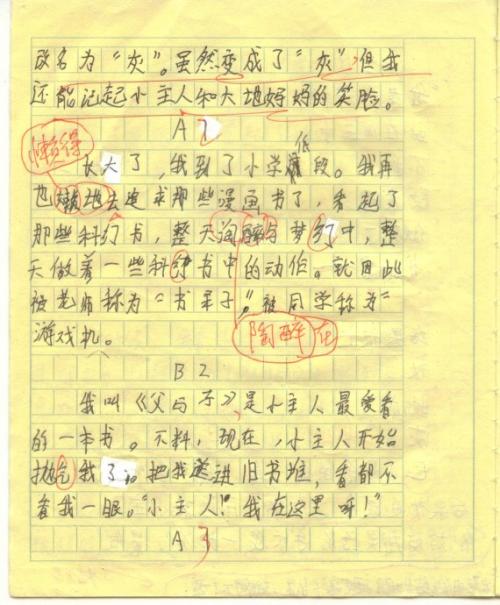 改名为“灰”。虽然变成了“灰”但我
还能记起小主人和大地妈妈的笑脸。
A 2
懒得
长大了，我到了小学低段。我再
也懒地去追求那些漫画书了，看起了
那些科幻书，整天淘醉与梦幻中，整
天做着一些科幻书中的动作。就因此
被老师称为“书呆子”，被同学称为“
游戏机。
陶醉在
B 2
我叫《父与子》，是小主人最爱看
的一本书。不料，现在，小主人开始
抛弃我了。把我送进旧书堆，看都不
看我一眼。“小主人！我在这里呀！”
A 3